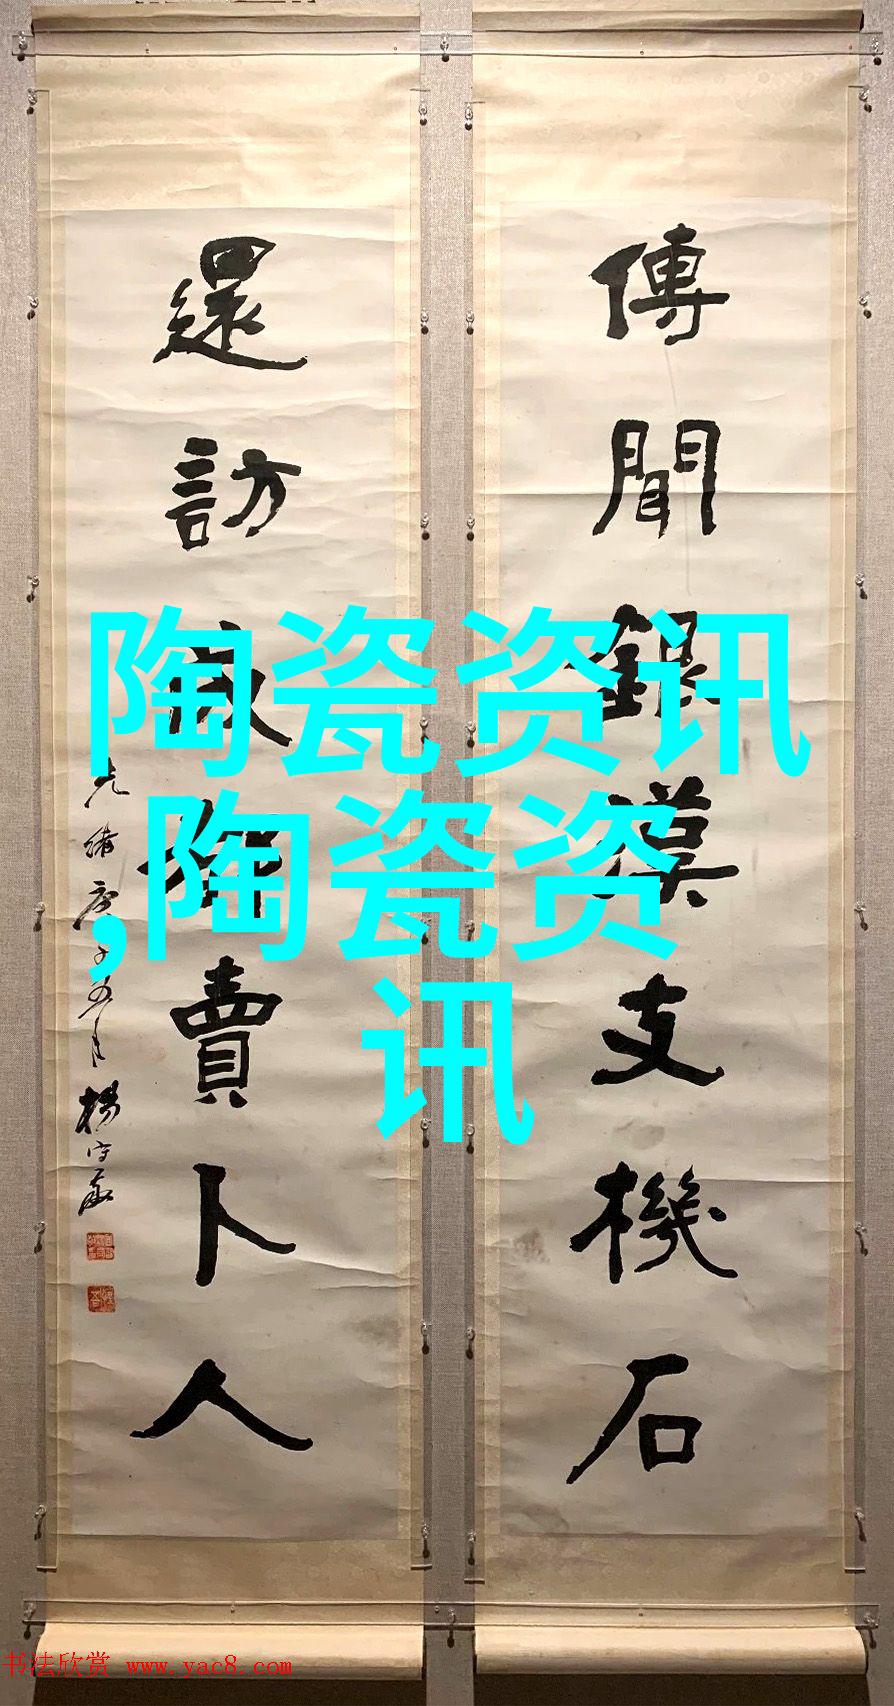 傳聞銀漢支機石
還訪
賣卜人
光緒庚子五月楊守敬
陶瓷资讯
,陶瓷资
讯
书法欣赏 www.yac8.com